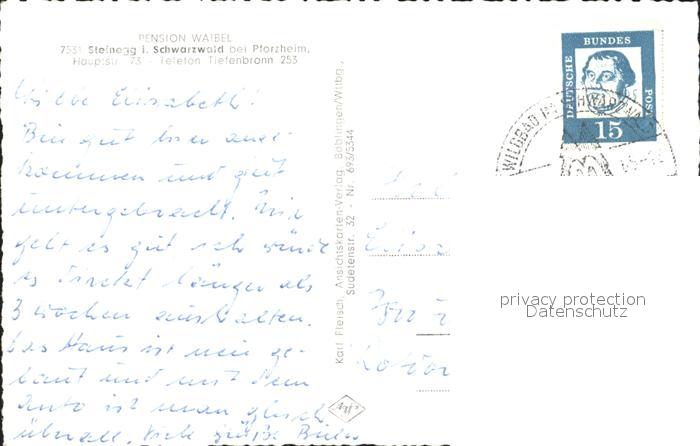 PENSION WAIBEL
7531 Steinegg i. Schwarzwald bei Pforzheim,
Hauptstr. 73 - Telefon Tiefenbronn 253
Liebe Elisabeth!
Bin gut hier ange-
kommen und gut
untergebracht. Mir
geht es gut ich würde
es direkt länger als
3 Wochen aushalten.
Das Haus ist neu ge-
baut und mit dem
Auto ist man gleich
überall. Viele Grüße
Karl Fleisch, Ansichtskarten-Verlag, Böblingen/Wttbg.,
Sudetenstr. 32 - Nr. 693/5344
DEUTSCHE
BUNDES
POST
15
WILDBAD IM SCHWARZWA
privacy protection
Datenschutz